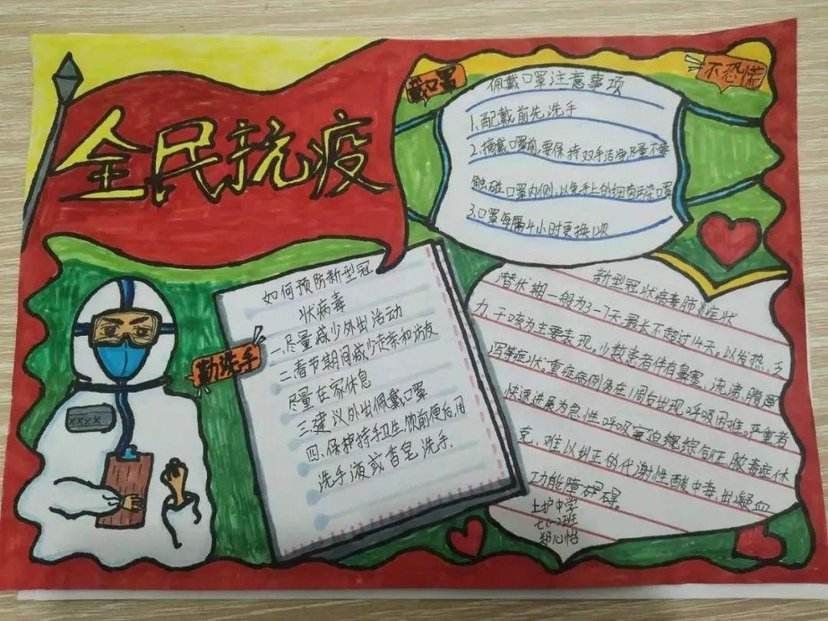 全民抗疫
戴口罩
不恐慌
佩戴口罩注意事项
1.配戴前先洗手
2.摘戴口罩前,要保持双手洁净,尽量不要
触碰口罩内侧,以免手上的细菌污染口罩
3.口罩每隔4小时更换1次
勤洗手
如何预防新型冠
状病毒
一.尽量减少外出活动
二.春节期间减少走亲和访友
尽量在家休息
三.建议外出佩戴口罩
四.保护持手卫生,饮前便后,用
洗手液或香皂洗手.
新型冠状病毒肺炎症状
潜伏期一般为3-7天,最长不超过14天,以发热、乏
力、干咳为主要表现,少数患者伴有鼻塞、流涕、腹
泻等症状,重症病例多在1周后出现呼吸困难,严重者
快速进展为急性呼吸窘迫综合征、脓毒症休
克、难以纠正的代谢性酸中毒出凝血
功能障碍.
上护中学
七(2)班